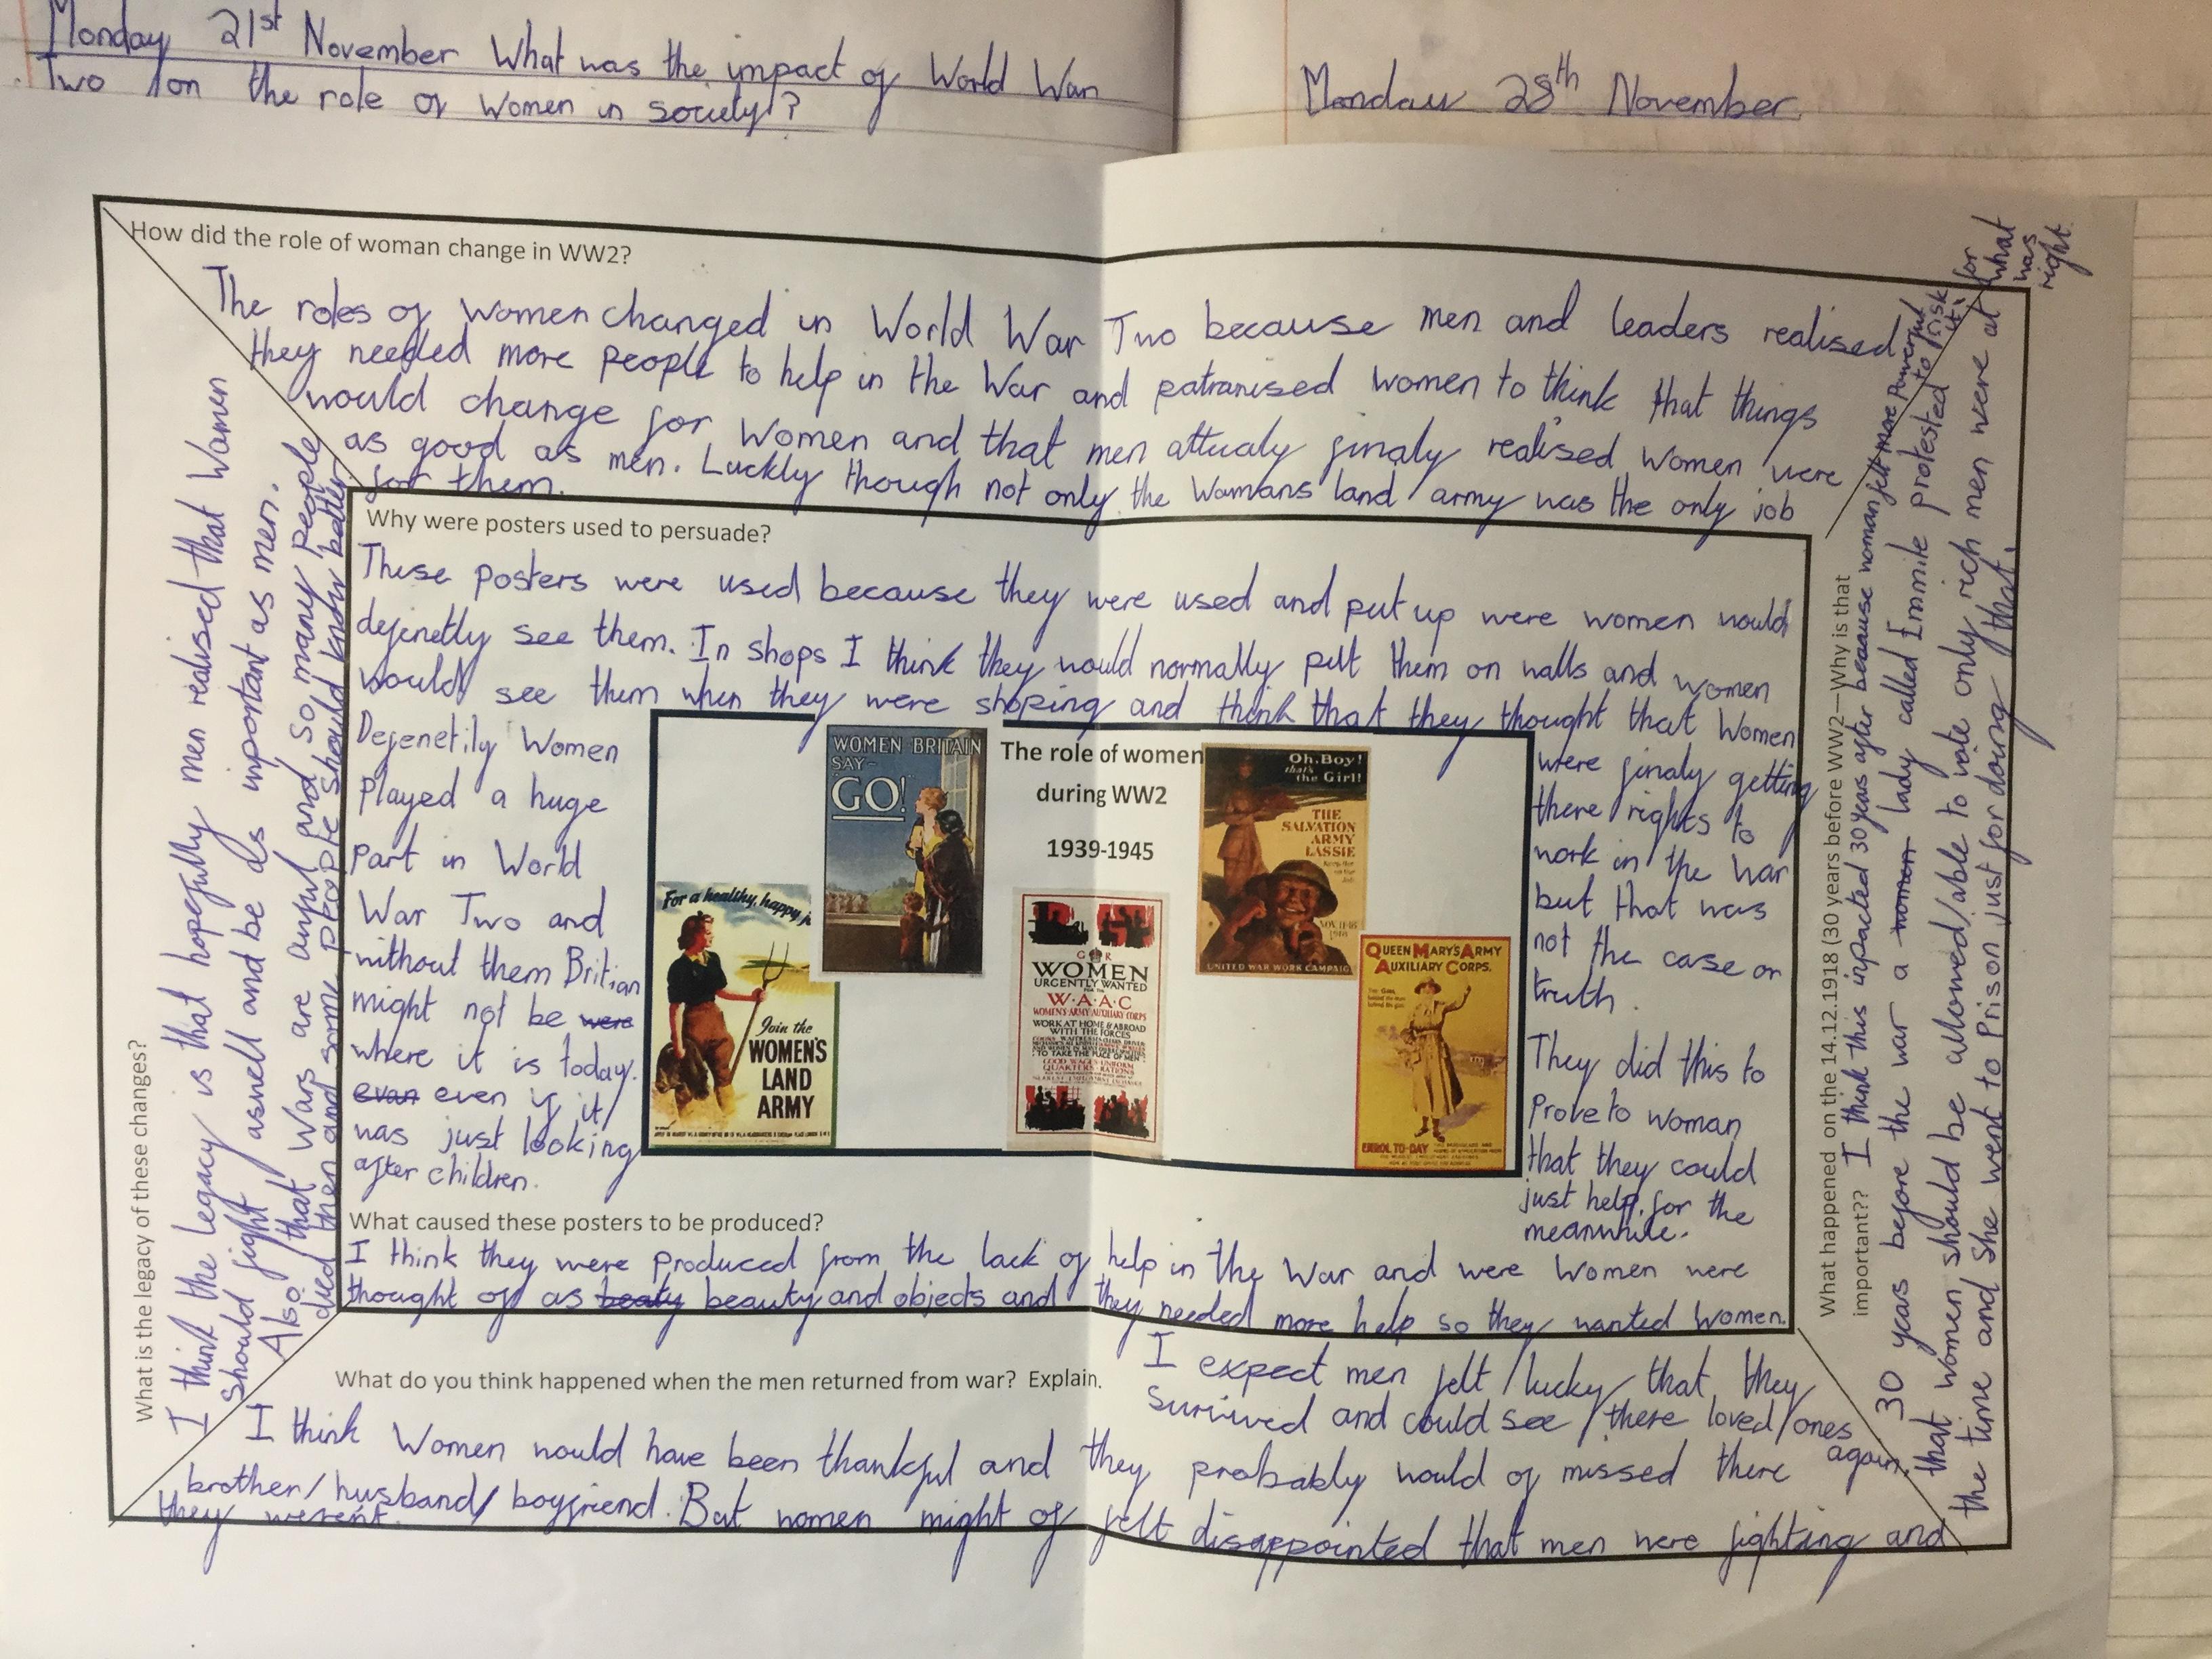 Monday 21st November What was the impact of World War
Two on the role of Women in society?
Monday 28th November
How did the role of woman change in WW2?
The roles of women changed in World War Two because men and leaders realised
they needed more people to help in the War and patranised women to think that things
would change for Women and that men attualy finaly realised women were
as good as men. Luckly though not only the Womans land army was the only job
for them.
Why were posters used to persuade?
These posters were used because they were used and put up were women would
defenetly see them. In shops I think they would normally put them on walls and women
would see them when they were shoping and think that they thought that Women
were finaly getting
there rights to
work in the war
but that was
not the case or
truth.
They did this to
Prove to woman
that they could
just help for the
meanwhile.
Defenetily Women
Played a huge
part in World
War Two and
without them Britian
might not be were
where it is today.
evan even if it
was just looking
after children.
WOMEN BRITAIN
SAY-
"GO!"
The role of women
during WW2
1939-1945
Oh, Boy!
that's
the Girl!
THE
SALVATION
ARMY
LASSIE
NOV 11-18
1918
UNITED WAR WORK CAMPAIGN
For a healthy, happy
Join the
WOMEN'S
LAND
ARMY
G R
WOMEN
URGENTLY WANTED
FOR THE
W·A·A·C
WOMEN'S ARMY AUXILIARY CORPS
WORK AT HOME & ABROAD
WITH THE FORCES
TO TAKE THE PLACE OF MEN
GOOD WAGES·UNIFORM
QUARTERS·RATIONS
QUEEN MARY'S ARMY
AUXILIARY CORPS.
ENROL TO-DAY
What caused these posters to be produced?
I think they were Produced from the lack of help in the War and were Women were
thought of as beaty beauty and objects and they needed more help so they wanted Women.
What do you think happened when the men returned from war? Explain.
I expect men felt lucky that they
survived and could see there loved ones
again.
I think Women would have been thankful and they probably would of missed there
brother/husband/boyfriend. But women might of felt disappointed that men were fighting and
they werent.
What is the legacy of these changes?
I think the legacy is that hopefully men realised that Women
should fight aswell and be as inportant as men.
Also that Wars are awful and so many People
died then and some People should know better.
What happened on the 14.12.1918 (30 years before WW2—Why is that
important?? I think this inpacted 30 years after because woman felt more Powerful
30 yeas before the war a women lady called Immile protested to risk it
that women should be allowed/able to vote only rich men were at for
the time and she went to Prison just for doing that.
what
was
right.